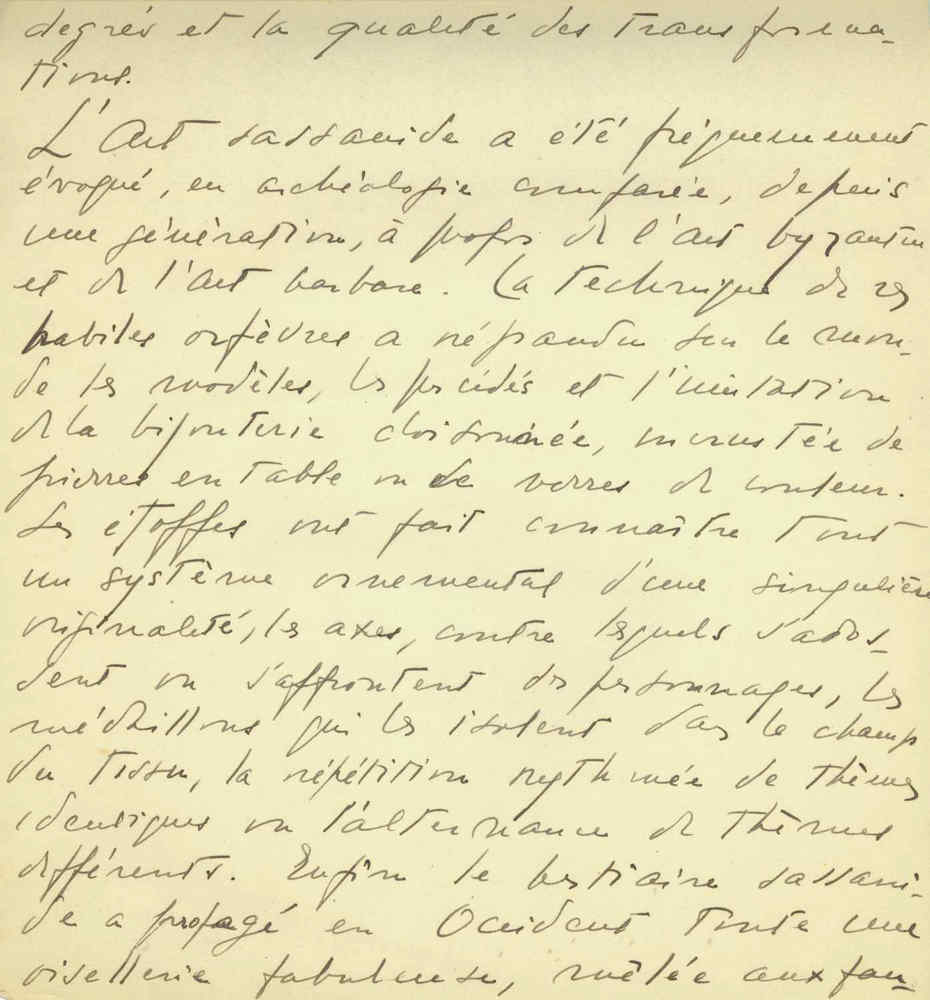 degrés et la qualité des transforma-
tions.
L'Art sassanide a été fréquemment
évoqué, en archéologie comparée, depuis
une génération, à propos de l'art byzantin
et de l'art barbare. La technique de ces
habiles orfèvres a répandu sur le mon-
de les modèles, les procédés et l'imitation
de la bijouterie cloisonnée, incrustée de
pierres en table ou de verres de couleur.
Les étoffes ont fait connaître tout
un système ornemental d'une singulière
originalité, les axes, contre lesquels s'ados-
sent ou s'affrontent des personnages, les
médaillons qui les isolent dans le champ
du tissu, la répétition rythmée de thèmes
identiques ou l'alternance de thèmes
différents. Enfin le bestiaire sassani-
de a propagé en Occident toute une
oisellerie fabuleuse, mêlée aux fau-